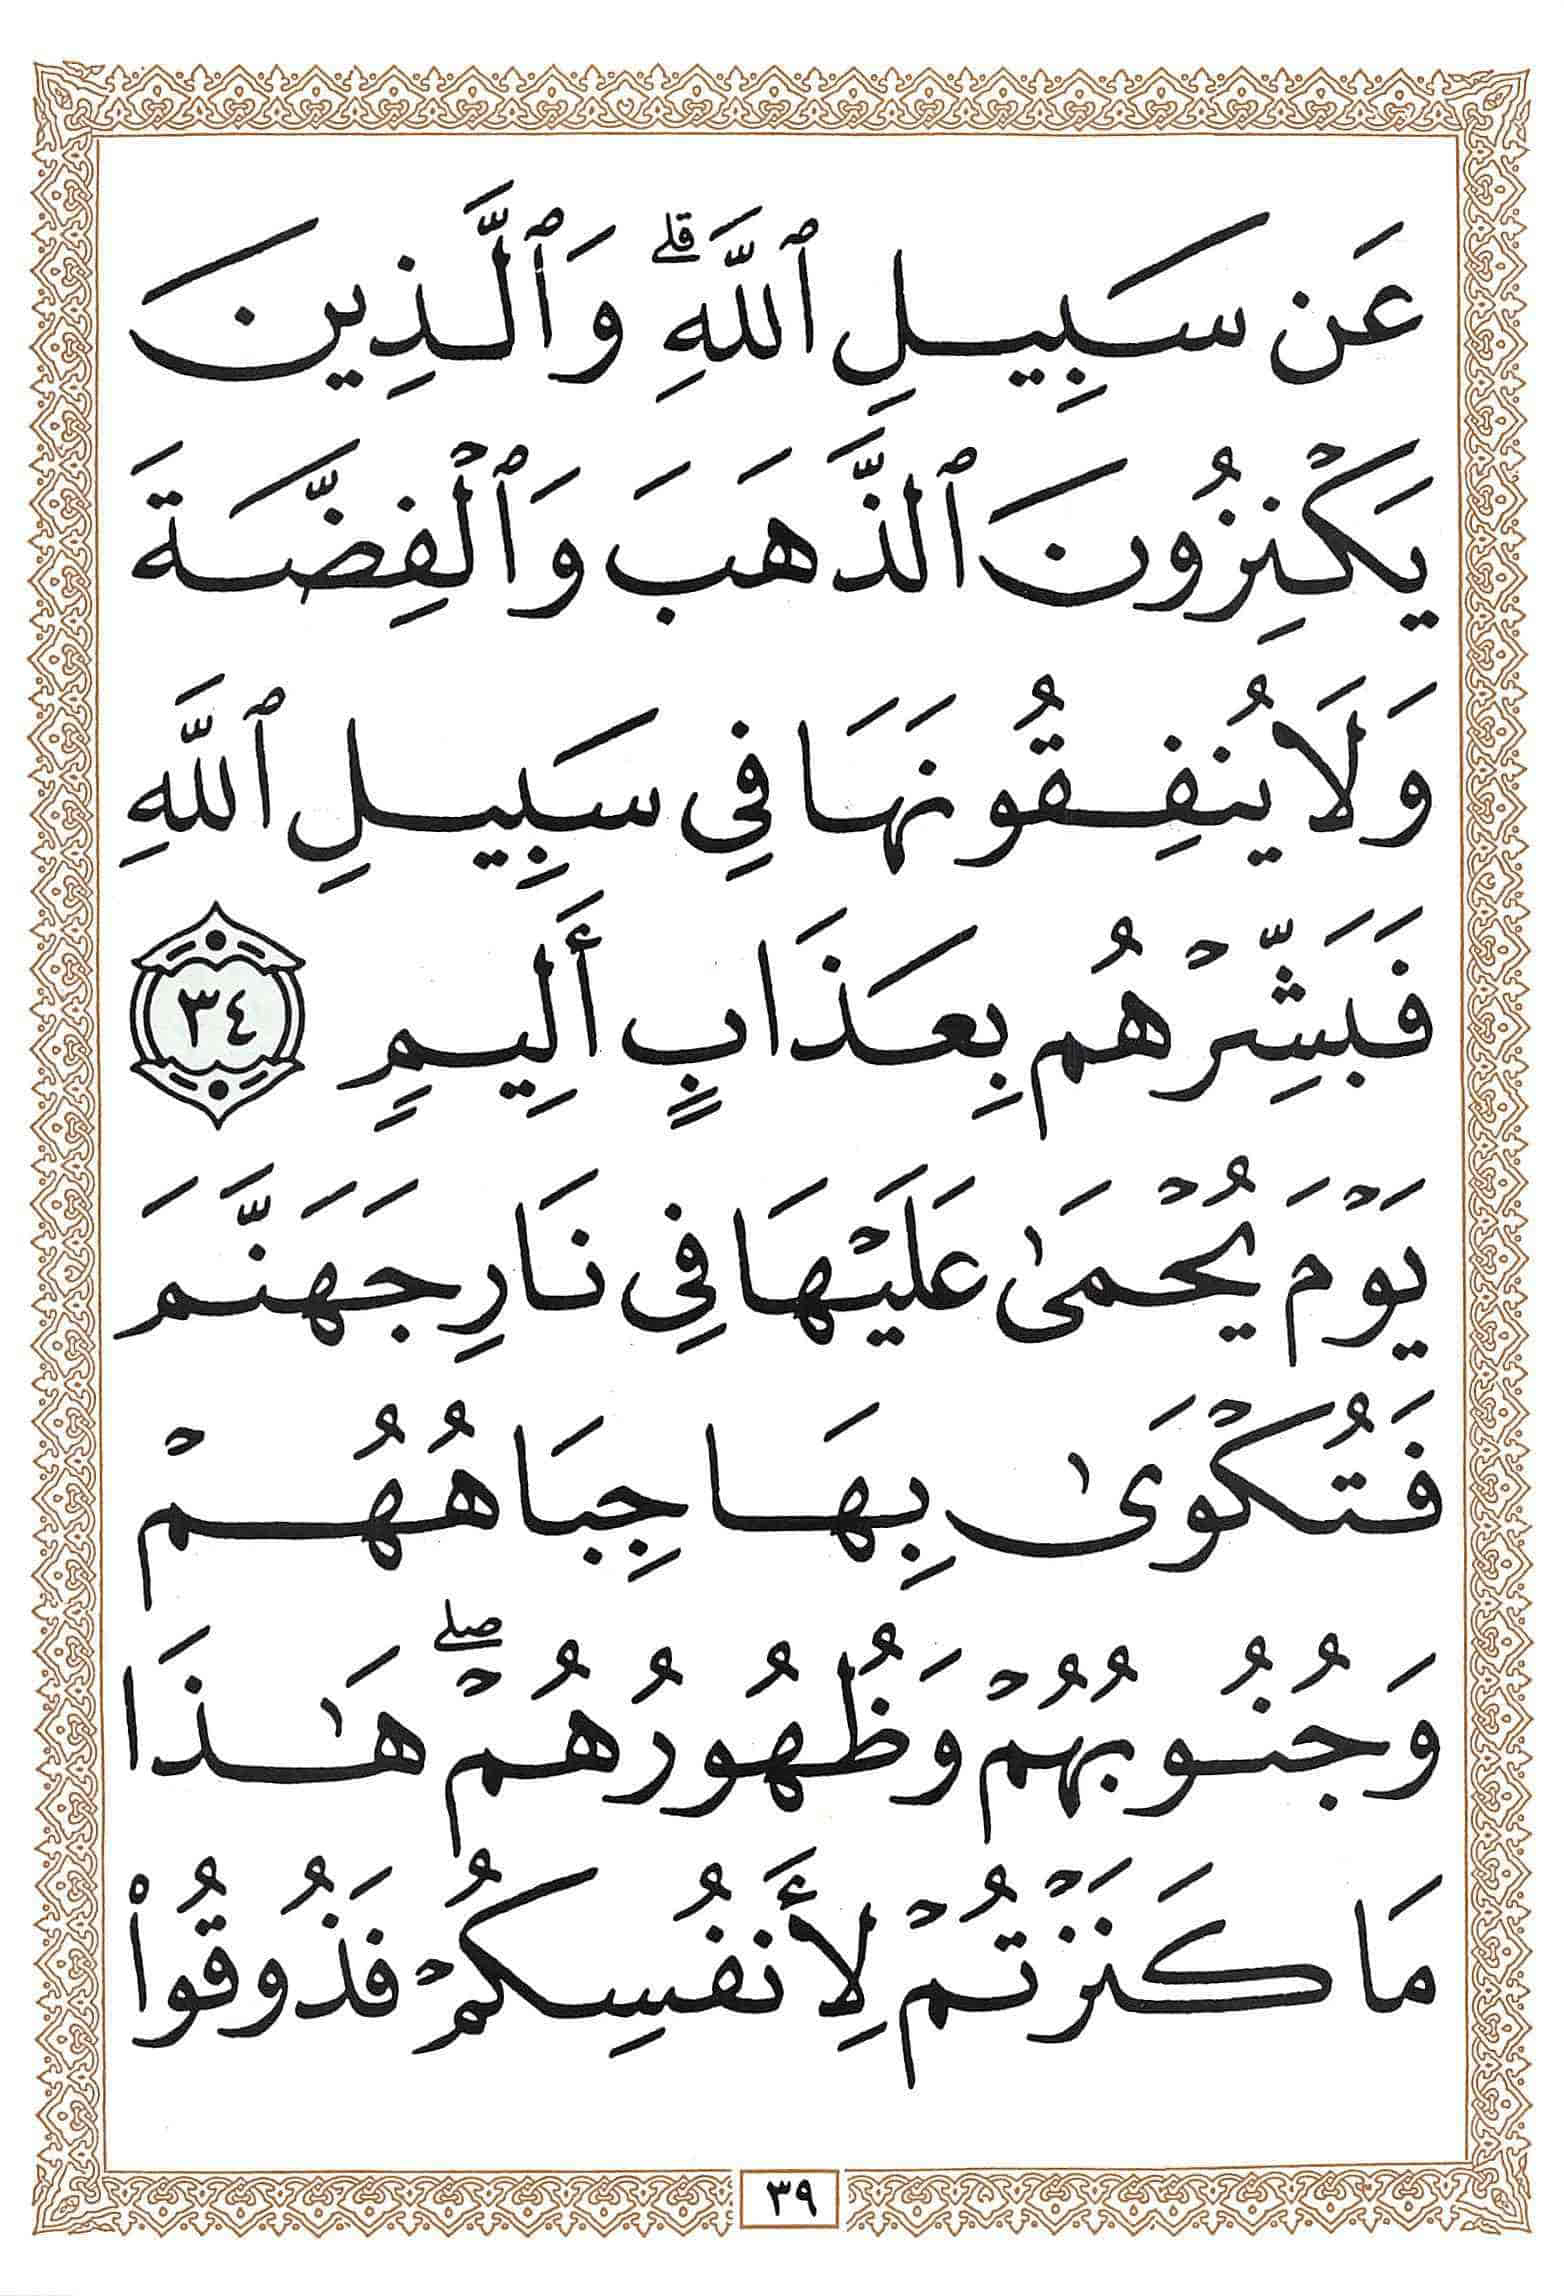 عَن سَبِيلِ ٱللَّهِۗ وَٱلَّذِينَ
يَكْنِزُونَ ٱلذَّهَبَ وَٱلْفِضَّةَ
وَلَا يُنفِقُونَهَا فِي سَبِيلِ ٱللَّهِ
فَبَشِّرْهُم بِعَذَابٍ أَلِيمٍ ٣٤
يَوْمَ يُحْمَىٰ عَلَيْهَا فِي نَارِ جَهَنَّمَ
فَتُكْوَىٰ بِهَا جِبَاهُهُمْ
وَجُنُوبُهُمْ وَظُهُورُهُمْۖ هَٰذَا
مَا كَنَزْتُمْ لِأَنفُسِكُمْ فَذُوقُوا۟
٣٩